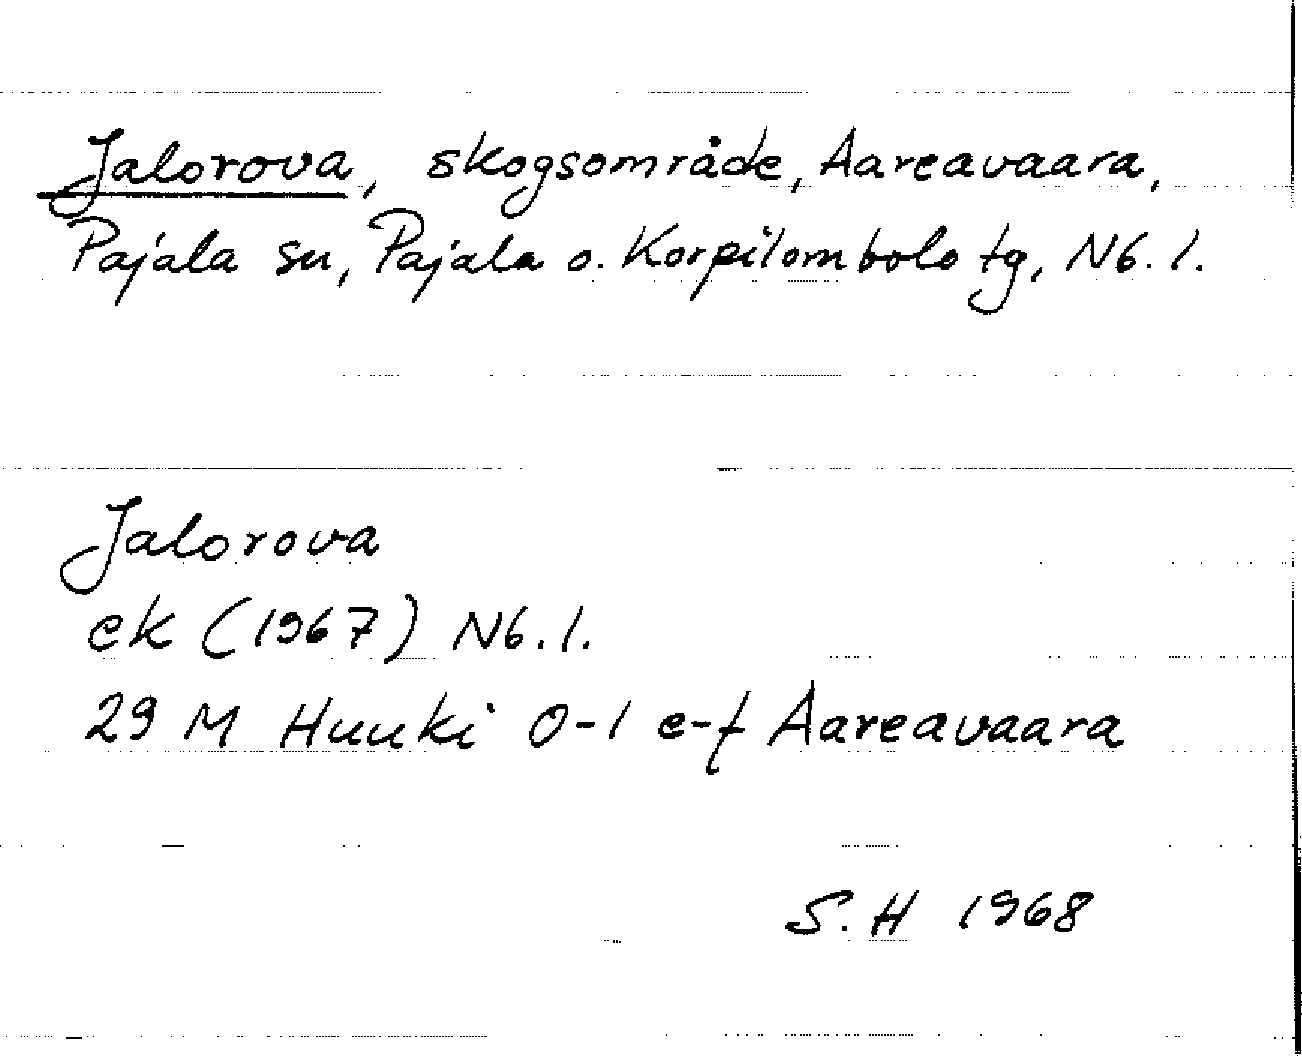 Jalorova, skogsområde, Aareavaara,
Pajala sn, Pajala o. Korpilombolo tg, Nb. l.
Jalorova
ek (1967) Nb. l.
29 M Huuki 0-1 e-f Aareavaara
S.H 1968